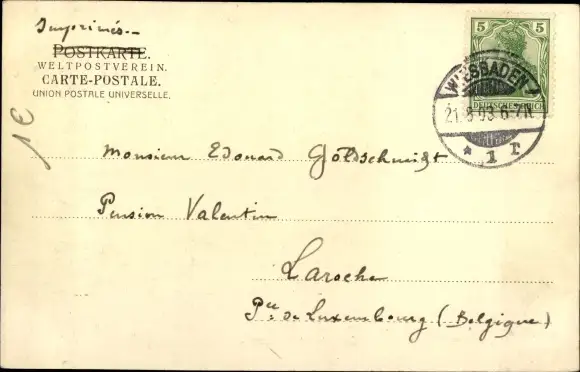 Imprimés.—
POSTKARTE.
WELTPOSTVEREIN.
CARTE-POSTALE.
UNION POSTALE UNIVERSELLE.
1€
5 5
DEUTSCHES REICH
WIESBADEN
21.8.03.6-7N
* 1 r
Monsieur Edouard Goldschmidt
Pension Valentin
Laroche
Pce de Luxembourg (Belgique)